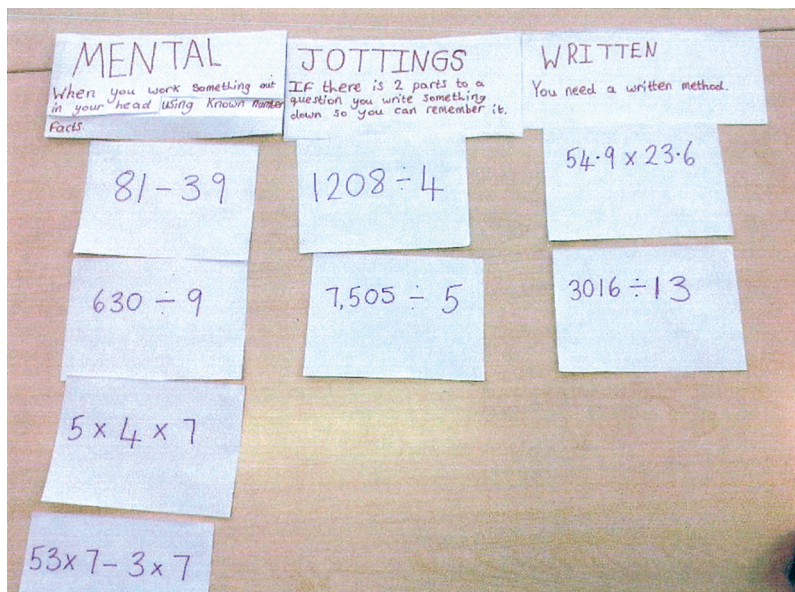 MENTAL
When you work something out
in your head using known number
facts.
81 - 39
630 ÷ 9
5 x 4 x 7
53x 7 - 3 x 7
JOTTINGS
IF there is 2 parts to a
question you write something
down so you can remember it.
1208 ÷ 4
7,505 ÷ 5
WRITTEN
You need a written method.
54.9 x 23.6
3016 ÷ 13